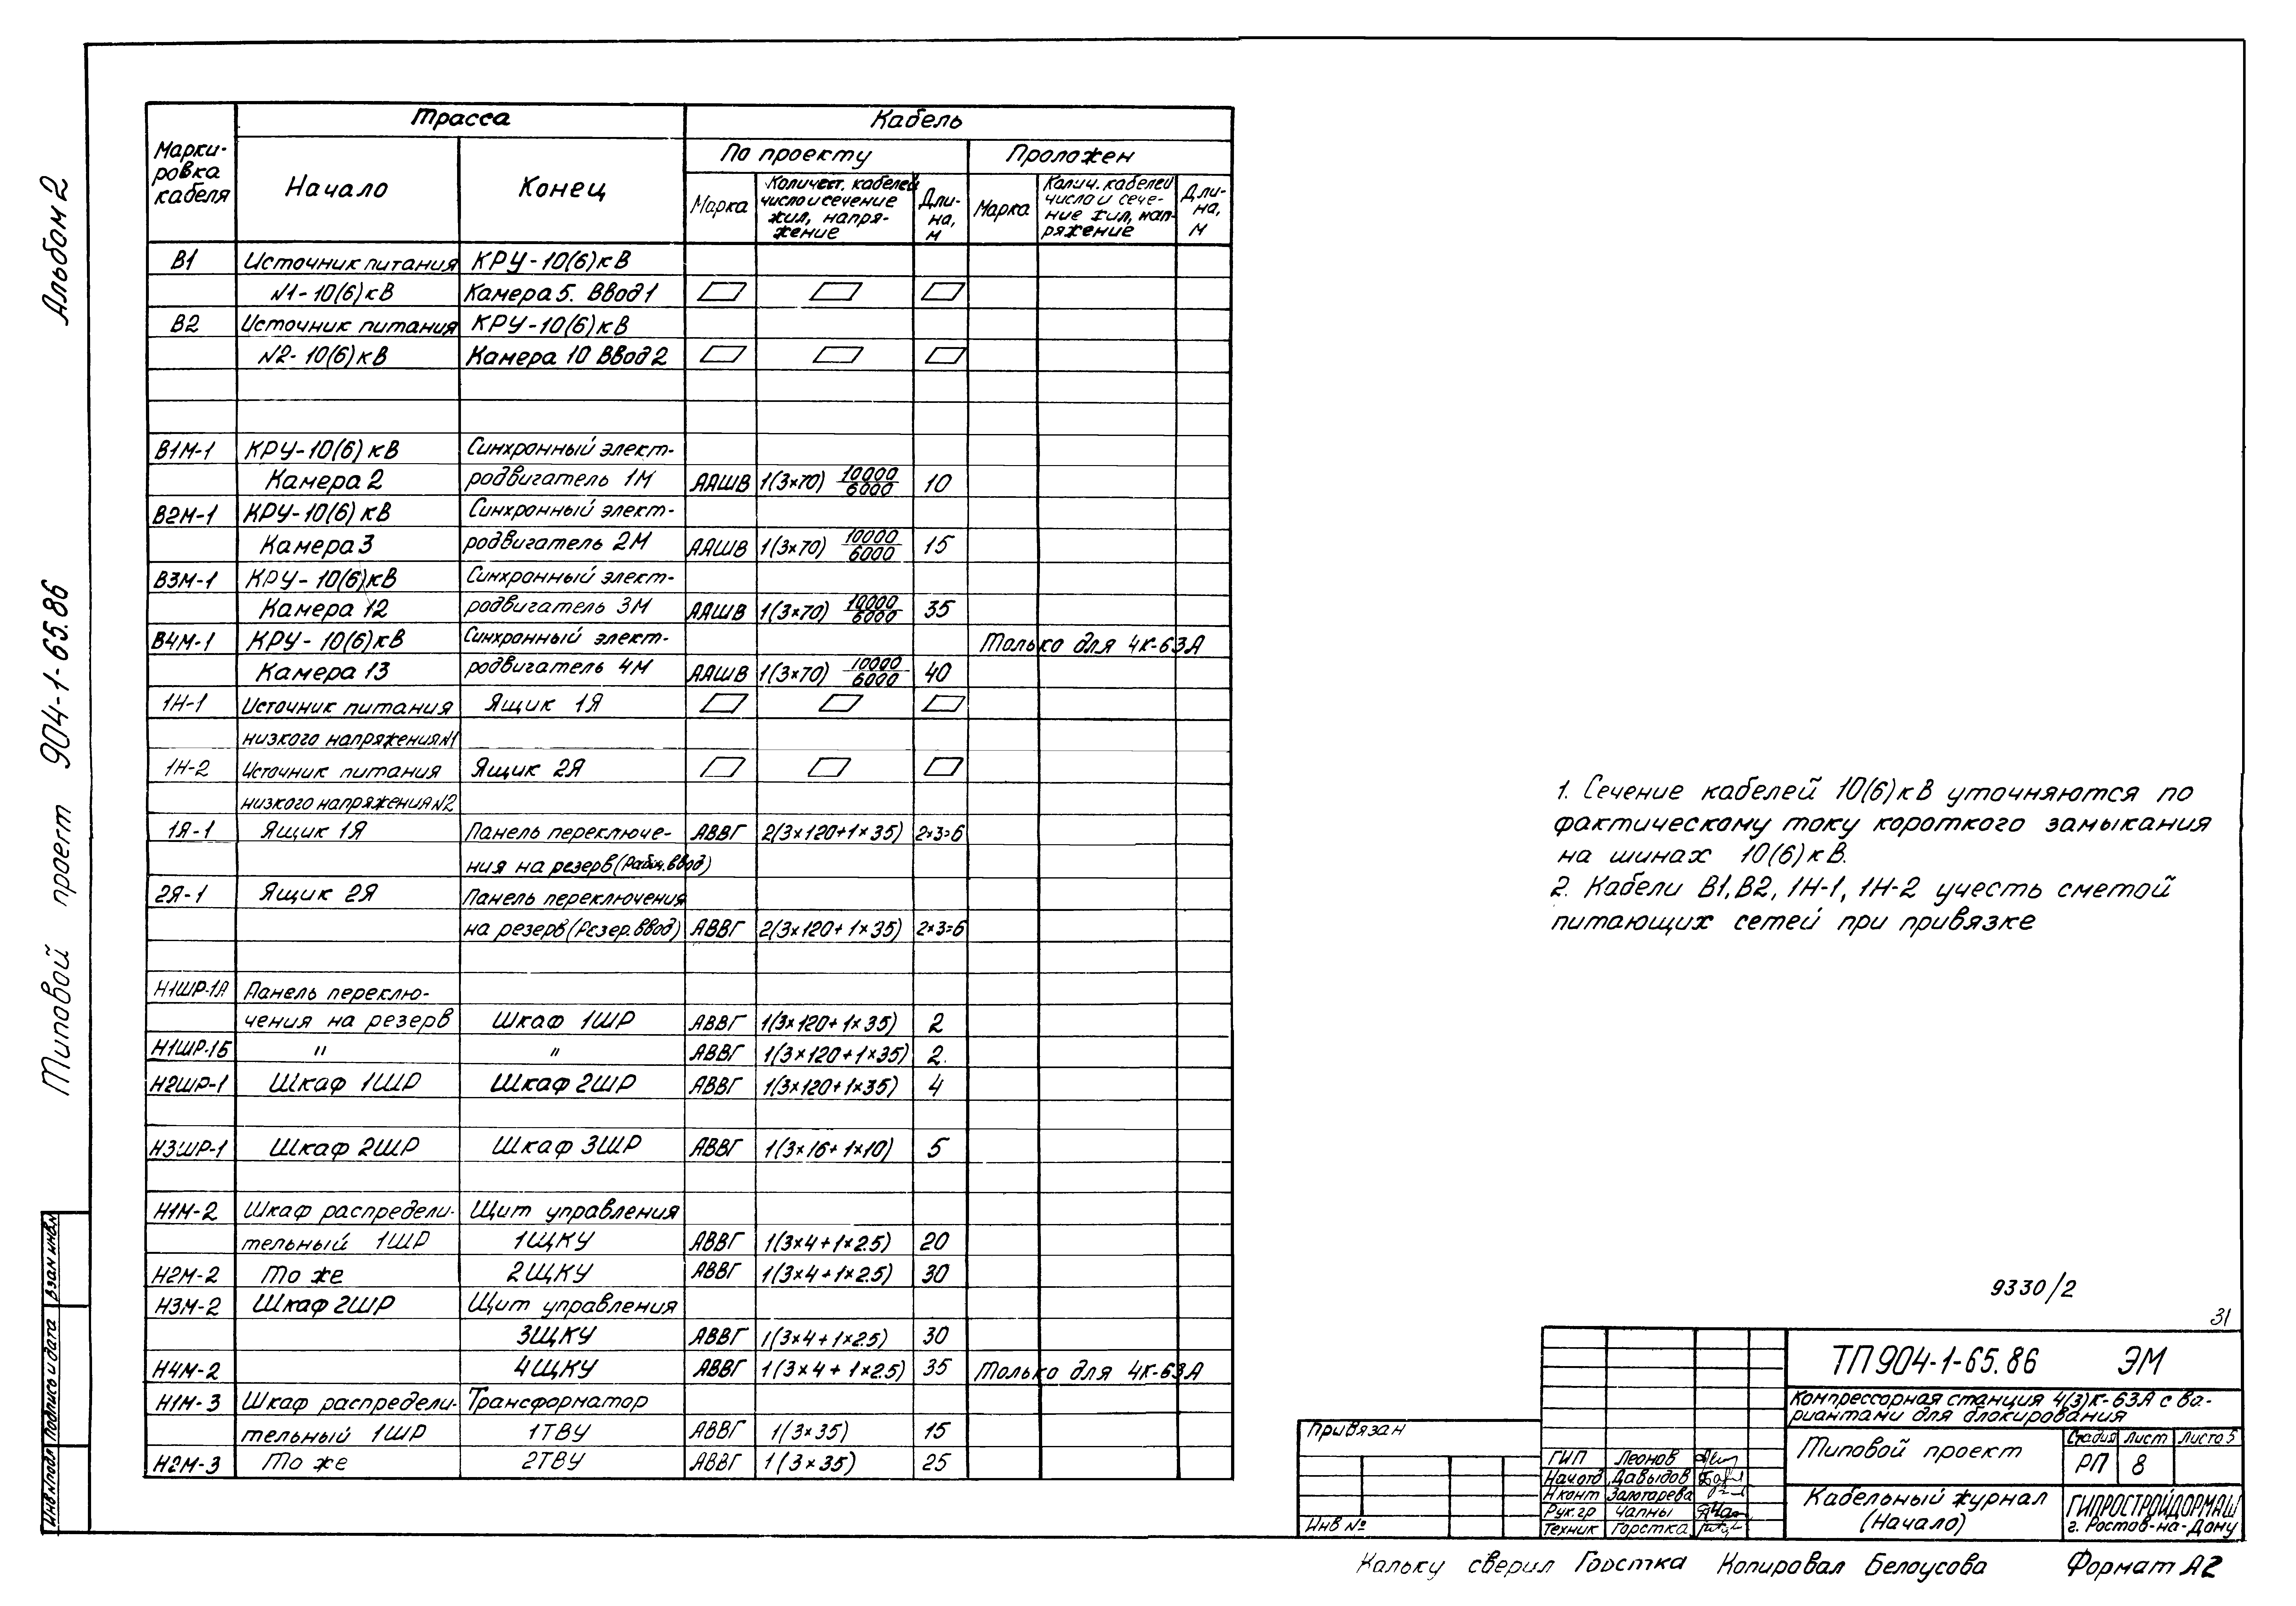 Альбом 2
Типовой проект 904-1-65.86
Марки-
ровка
кабеля
Трасса
Кабель
Начало
Конец
По проекту
Проложен
Марка
Количест. кабелей
число и сечение
жил, напря-
жение
Дли-
на,
м
Марка
Колич. кабелей
число и сече-
ние жил, нап-
ряжение
Дли-
на,
м
В1 Источник питания КРУ-10(6)кВ
N1-10(6)кВ Камера 5. Ввод 1
В2 Источник питания КРУ-10(6)кВ
N2-10(6)кВ Камера 10 Ввод 2
В1М-1 КРУ-10(6)кВ Синхронный элект-
Камера 2 родвигатель 1М ААШВ 1(3×70) 10000/6000 10
В2М-1 КРУ-10(6)кВ Синхронный элект-
Камера 3 родвигатель 2М ААШВ 1(3×70) 10000/6000 15
В3М-1 КРУ-10(6)кВ Синхронный элект-
Камера 12 родвигатель 3М ААШВ 1(3×70) 10000/6000 35
В4М-1 КРУ-10(6)кВ Синхронный элект- Только для 4К-63А
Камера 13 родвигатель 4М ААШВ 1(3×70) 10000/6000 40
1Н-1 Источник питания Ящик 1Я
низкого напряжения N1
1Н-2 Источник питания Ящик 2Я
низкого напряжения N2
1Я-1 Ящик 1Я Панель переключе- АВВГ 2(3×120+1×35) 2×3=6
ния на резерв (Рабоч. ввод)
2Я-1 Ящик 2Я Панель переключения
на резерв (Резер. ввод) АВВГ 2(3×120+1×35) 2×3=6
Н1ШР-1А Панель переклю-
чения на резерв Шкаф 1ШР АВВГ 1(3×120+1×35) 2
Н1ШР-1Б " " АВВГ 1(3×120+1×35) 2.
Н2ШР-1 Шкаф 1ШР Шкаф 2ШР АВВГ 1(3×120+1×35) 4
Н3ШР-1 Шкаф 2ШР Шкаф 3ШР АВВГ 1(3×16+1×10) 5
Н1М-2 Шкаф распредели- Щит управления
тельный 1ШР 1ЩКУ АВВГ 1(3×4+1×2.5) 20
Н2М-2 То же 2ЩКУ АВВГ 1(3×4+1×2.5) 30
Н3М-2 Шкаф 2ШР Щит управления
3ЩКУ АВВГ 1(3×4+1×2.5) 30
Н4М-2 4ЩКУ АВВГ 1(3×4+1×2.5) 35 Только для 4К-63А
Н1М-3 Шкаф распредели- Трансформатор
тельный 1ШР 1ТВУ АВВГ 1(3×35) 15
Н2М-3 То же 2ТВУ АВВГ 1(3×35) 25
1. Сечение кабелей 10(6)кВ уточняются по
фактическому току короткого замыкания
на шинах 10(6)кВ.
2. Кабели В1, В2, 1Н-1, 1Н-2 учесть сметой
питающих сетей при привязке
9330/2
31
ТП 904-1-65.86 ЭМ
Компрессорная станция 4(3)К-63А с ва-
риантами для блокирования
Типовой проект
Стадия Лист Листов
РП 8
Кабельный журнал
(Начало)
ГИПРОСТРОЙДОРМАШ
г. Ростов-на-Дону
Привязан
Инв №
ГИП Леонов
Нач.отд Давыдов
Н.конт Залотарева
Рук.гр Чапны
Техник Горстка
Взам инв.N
Подпись и дата
Инв.N подл
Кальку сверил Горстка Копировал Белоусова Формат А2